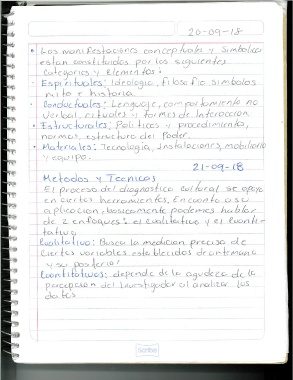 20-09-18
• Las manifestaciones conceptuales y simbolicas
estan constituidas por los siguientes
categorias y Elementos:
Espirituales: Ideologia, filosofia simbolos
mito e historia
• Conductuales: Lenguaje, comportamiento no
verbal, rituales y formas de Interacción
• Estructurales: Politicas y procedimiento,
normas, estructura del Poder.
• Materiales: Tecnologia, Instalaciones, mobiliario
y equipo.
21-09-18
Metodos y Tecnicas
El proceso del diagnostico cultural se apoya
en ciertas herramientas. En cuanto a su
aplicacion, basicamente podemos hablar
de 2 enfoques: el cualitativo y el cuanti-
tativo
Cualitativo: Busca la medicion precisa de
ciertas variables establecidos de antemano
y su posterior
Cuantitativos: depende de la agudeza de la
percepción del Investigador al analizar los
datos
Scribe